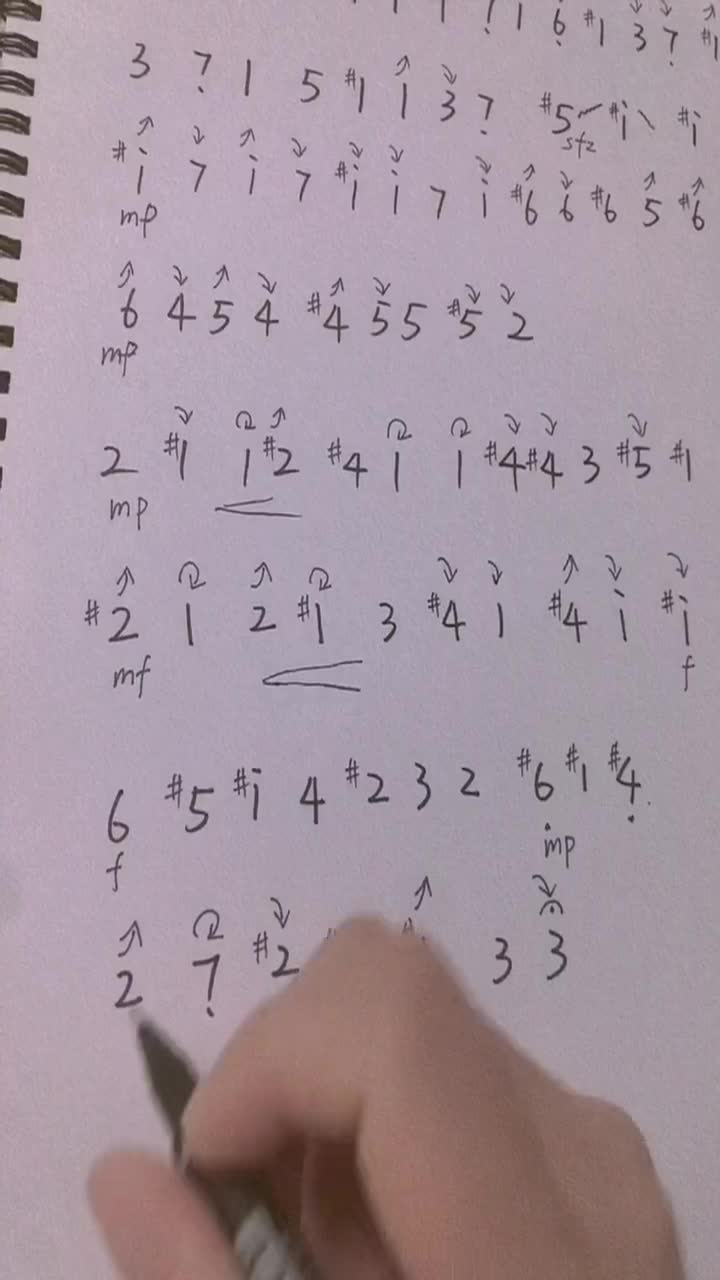 1 6 #1 3 7 #1
3 7 1 5 #1 1 3 7 #5 #i #i
sfz
#i 7 i 7 #i i 7 i #6 6 #6 5 #6
mp
6 4 5 4 #4 5 5 #5 2
mp
2 #1 1 #2 #4 1 1 #4 #4 3 #5 #1
mp
#2 1 2 #1 3 #4 1 #4 i #i
mf f
6 #5 #i 4 #2 3 2 #6 #1 #4
f mp
2 7 #2 3 3